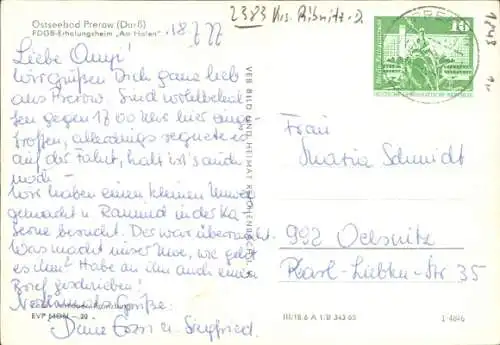 Ostseebad Prerow (Darß)
FDGB-Erholungsheim „Am Hafen"
18.7.77
2383 Krs. Ribnitz-D.
Liebe Omi!
Wir grüßen Dich ganz lieb
aus Prerow. Sind wohlbehal-
ten gegen 17 00 Uhr hier einge-
troffen, allerdings regnete es
auf der Fahrt, kalt ist's auch
noch –
Wir haben einen kleinen Umweg
gemacht u. Raimund in der Ka-
serne besucht. Der war überrascht.
Was macht unser Uwe, wie geht
es ihm? Habe an ihn auch einen
Brief geschrieben!
Nochmals Grüße
Deine u. Siegfried.
EVP MDN –,20
VEB BILD UND HEIMAT REICHENBACH (VOGTL)
III/18/6 A 1/B 343/65
1-4646
10
DEUTSCHE DEMOKRATISCHE REPUBLIK
Frau
Maria Schmidt
992 Oelsnitz
Karl-Liebkn.-Str 35